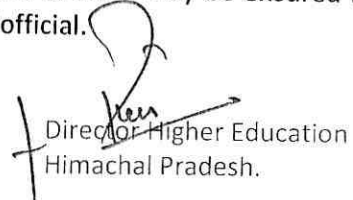 official.
Director Higher Education
Himachal Pradesh.